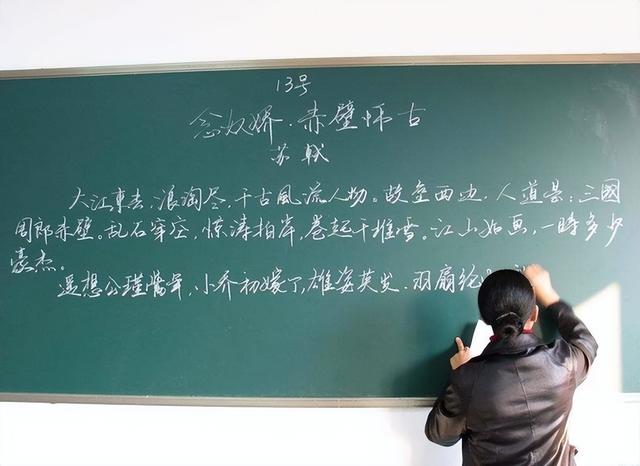 13号
念奴娇·赤壁怀古
苏轼
大江東去,浪淘尽,千古風流人物。故垒西边,人道是:三國
周郎赤壁。乱石穿空,惊涛拍岸,卷起千堆雪。江山如画,一時多少
豪杰。
遥想公瑾當年,小乔初嫁了,雄姿英发.羽扇纶